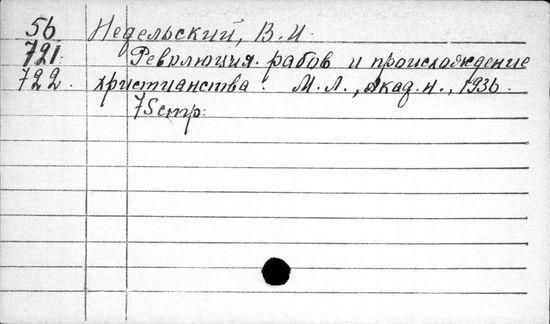 56 Недельский, В.И.
721. Революция рабов и происхождение
722. христианства. М.Л., Акад.н., 1936.
75 стр.